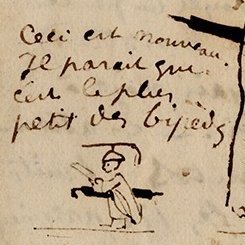 Ceci est nouveau.
Il parait que
c'est le plus
petit des bipèds